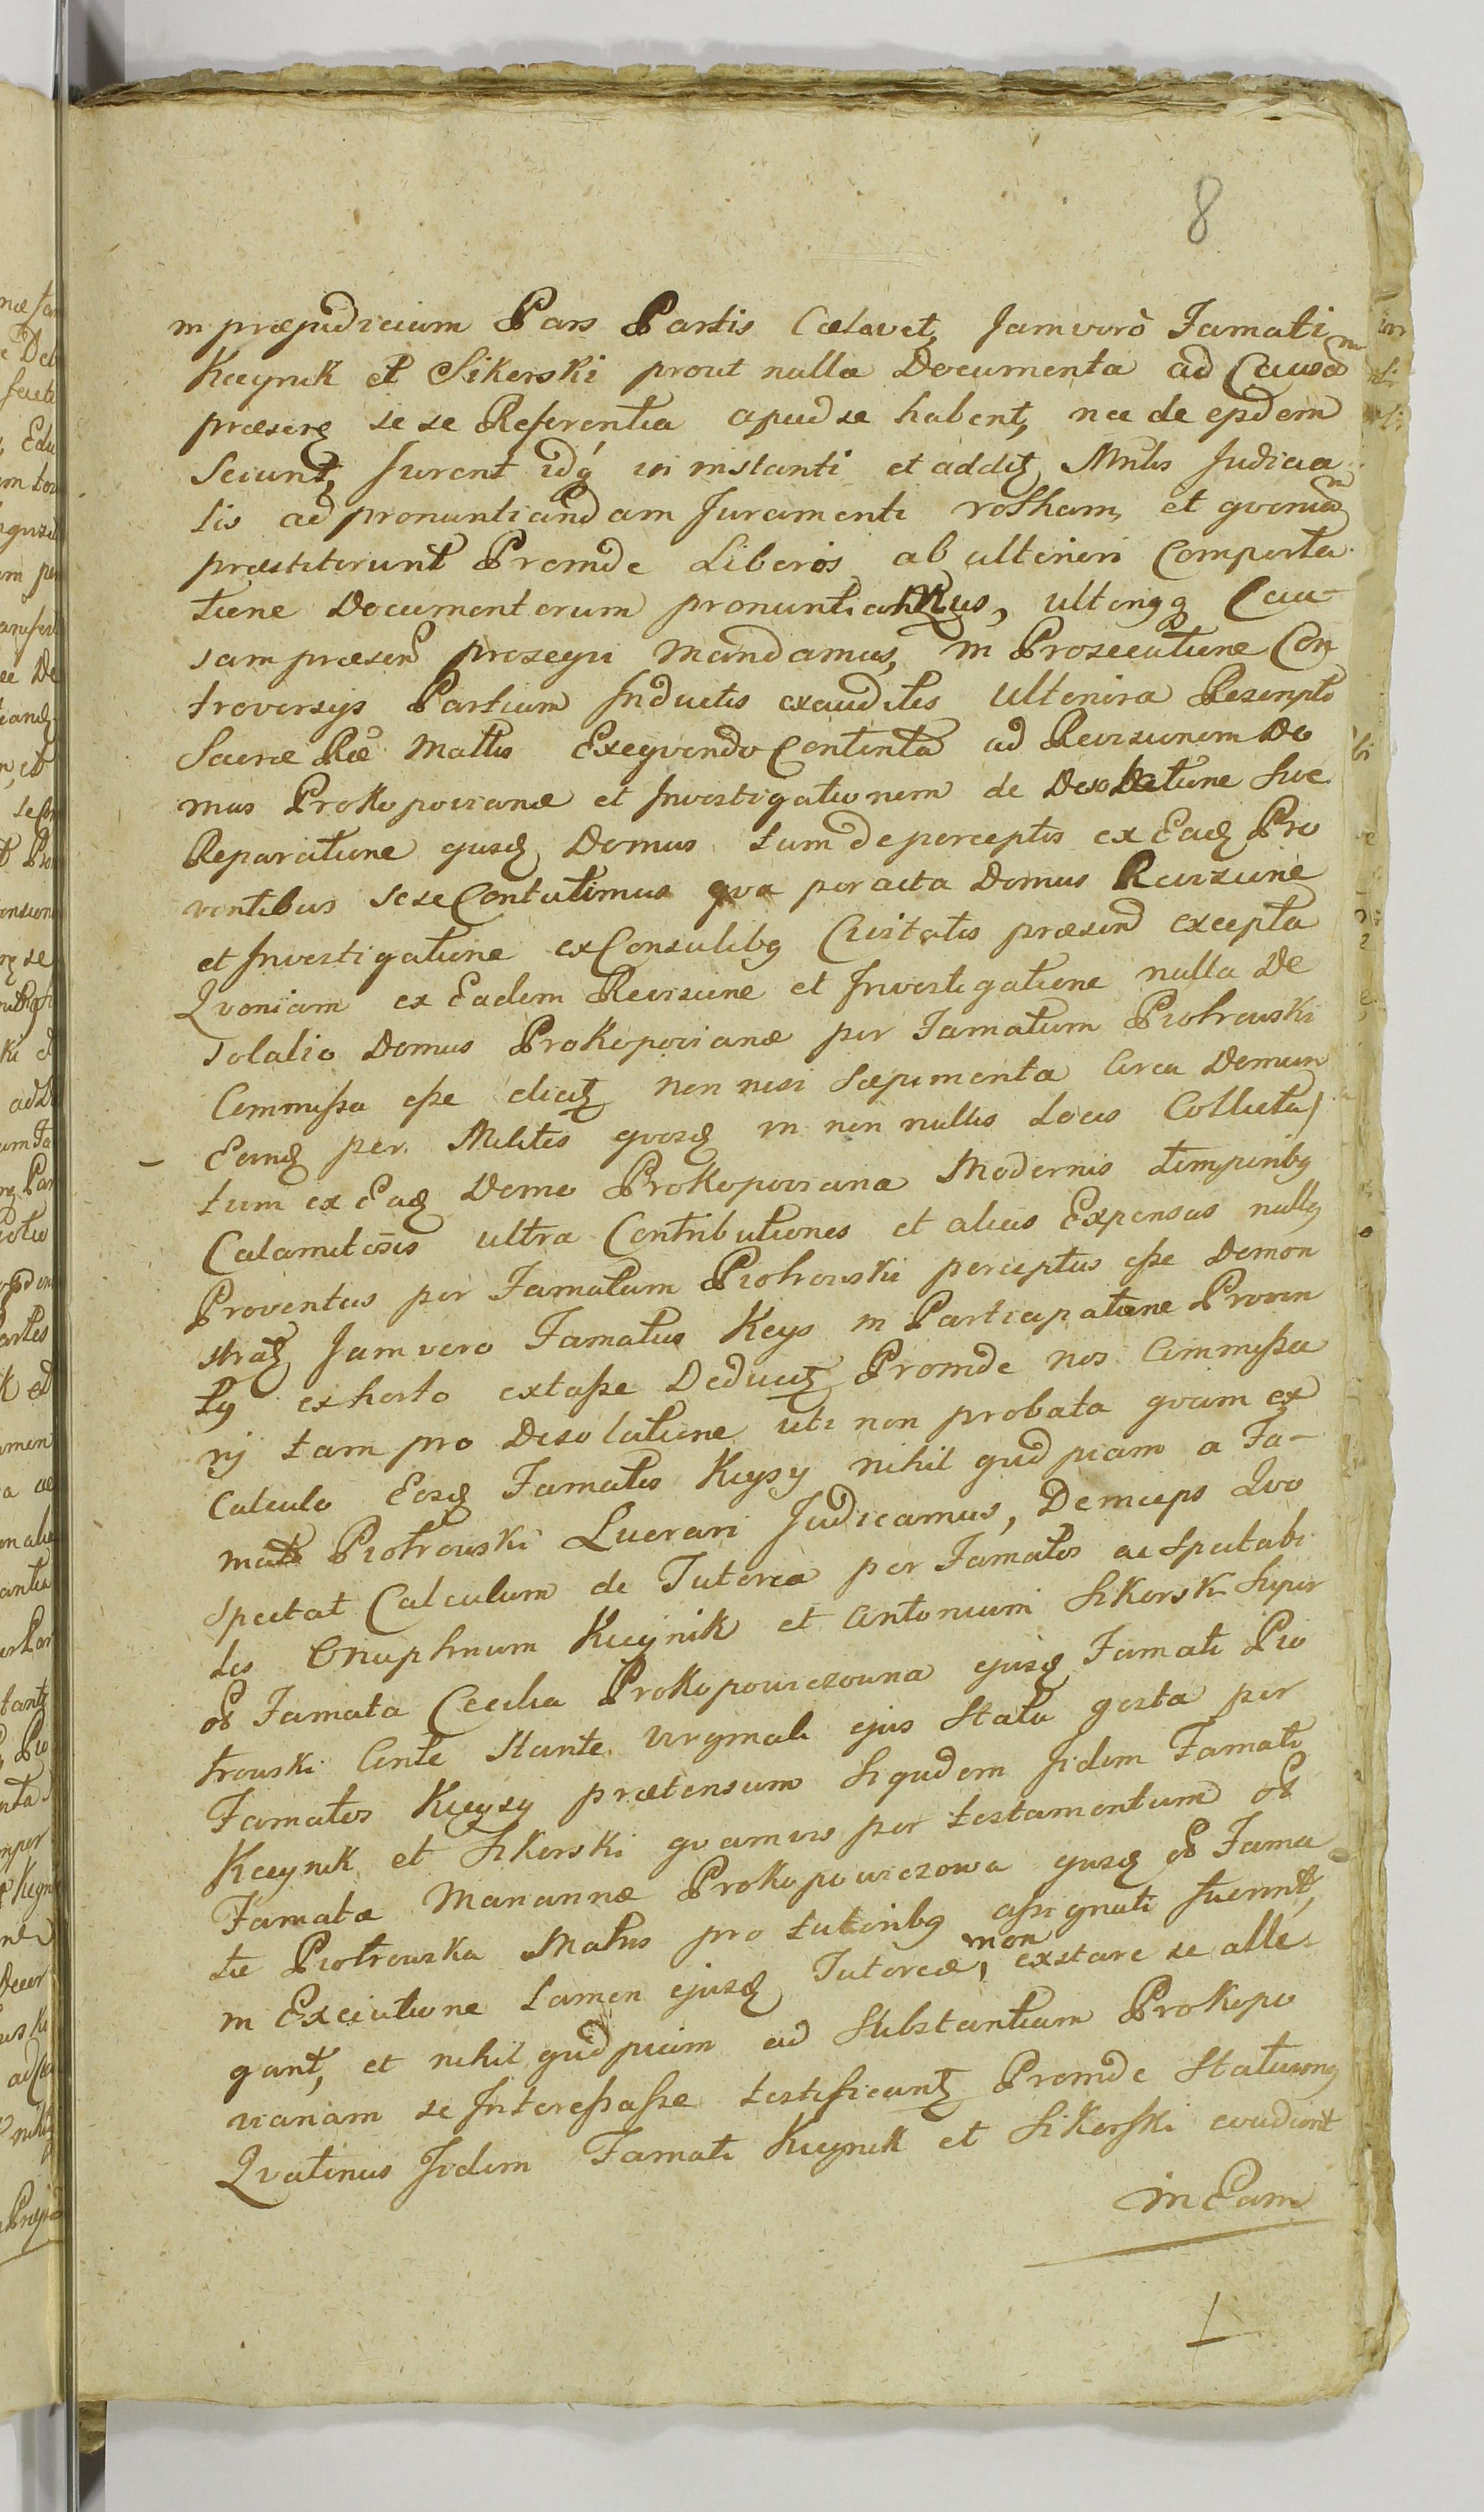 8
in præjudicium Pars Partis Cælavet, Jam verò Famati
Kieynik et Sikorski prout nulla Documenta ad Causam
præsen̄ se se Referentia apud se habent, nec de eisdem
Sciunt, Jurent idq́ in instanti et additʒ Mnl̄is Judicia
lis ad pronuntiandam Juramenti rotham, et qvoniam
præstiterunt Proinde Liberos ab ulteriori Comporta
tione Documentorum pronuntiamus, ulteriusqʒ Cau-
sam præsen̄ prosequi mandamus, in Prosecutione Con
troversys Partium Inductis exauditis Ulteriora Rescripto
Sacræ Ræ Mattis Exeqvendo Contenta ad Revisionem Do
mus Prokopovianæ et Investigationem de Desolatione Sive
Reparatione ejusdʒ Domus tum de perceptis ex Eadʒ Pro
ventibus sese Contulimus qva peracta Domus Revisione
et Investigatione ex Consulibʒ Civitatis præsen̄ excepta
Qvoniam ex Eadem Revisione et Investigatione nulla De
solatio Domus Prokopovianæ per Famatum Piotrowski
Commissa esse elicitʒ non nisi Sæpimenta Circa Domum
Eandʒ per Milites qvosdʒ in non nullis Locis Collecta,
tum ex Eadʒ Domo Prokopoviana Modernis temporibʒ
Calamitosis ultra Contributiones et alias Expensas nullʒ
Proventus per Famatum Piotrowski perceptus esse Demon
stratʒ Jam vero Famatus Keys in Participatione Proven
tʒ ex horto extasse Deducitʒ Proinde nos Commissa
rij tam pro Desolatione uti non probata qvam ex
Calculo Eosdʒ Famatos Kieysy nihil qvidpiam a Fa-
mato Piotrowski Lucrari Judicamus, Demceps Qvo
spectat Calculum de Tutorea per Famatos ac Spectabi
les Onuphrium Kieynik et Antonium Sikorski Super
olim Famata Cecilia Prokopowiczowna ejusdʒ Famati Pio
trowski Conte stante virginali ejus Statu gesta per
Famatos Kieysy prætensum Siqvidem Iidem Famati
Kieynik et Sikorski qvamvis per testamentum olim
Famatæ Mariannæ Prokopowiczowa ejusdʒ olim Fama
tæ Piotrowska Matris pro tutoribʒ assignati fuerint,
in Executione tamen ejusdʒ Tutoreæ, non exstare se alle
gant, et nihil qvidpiam ad Substantiam Prokopo
vianam se Interessasse testificantʒ Proinde Statuimʒ
Qvatinus Iidem Famati Kieynik et Sikorski evadient
in Eam